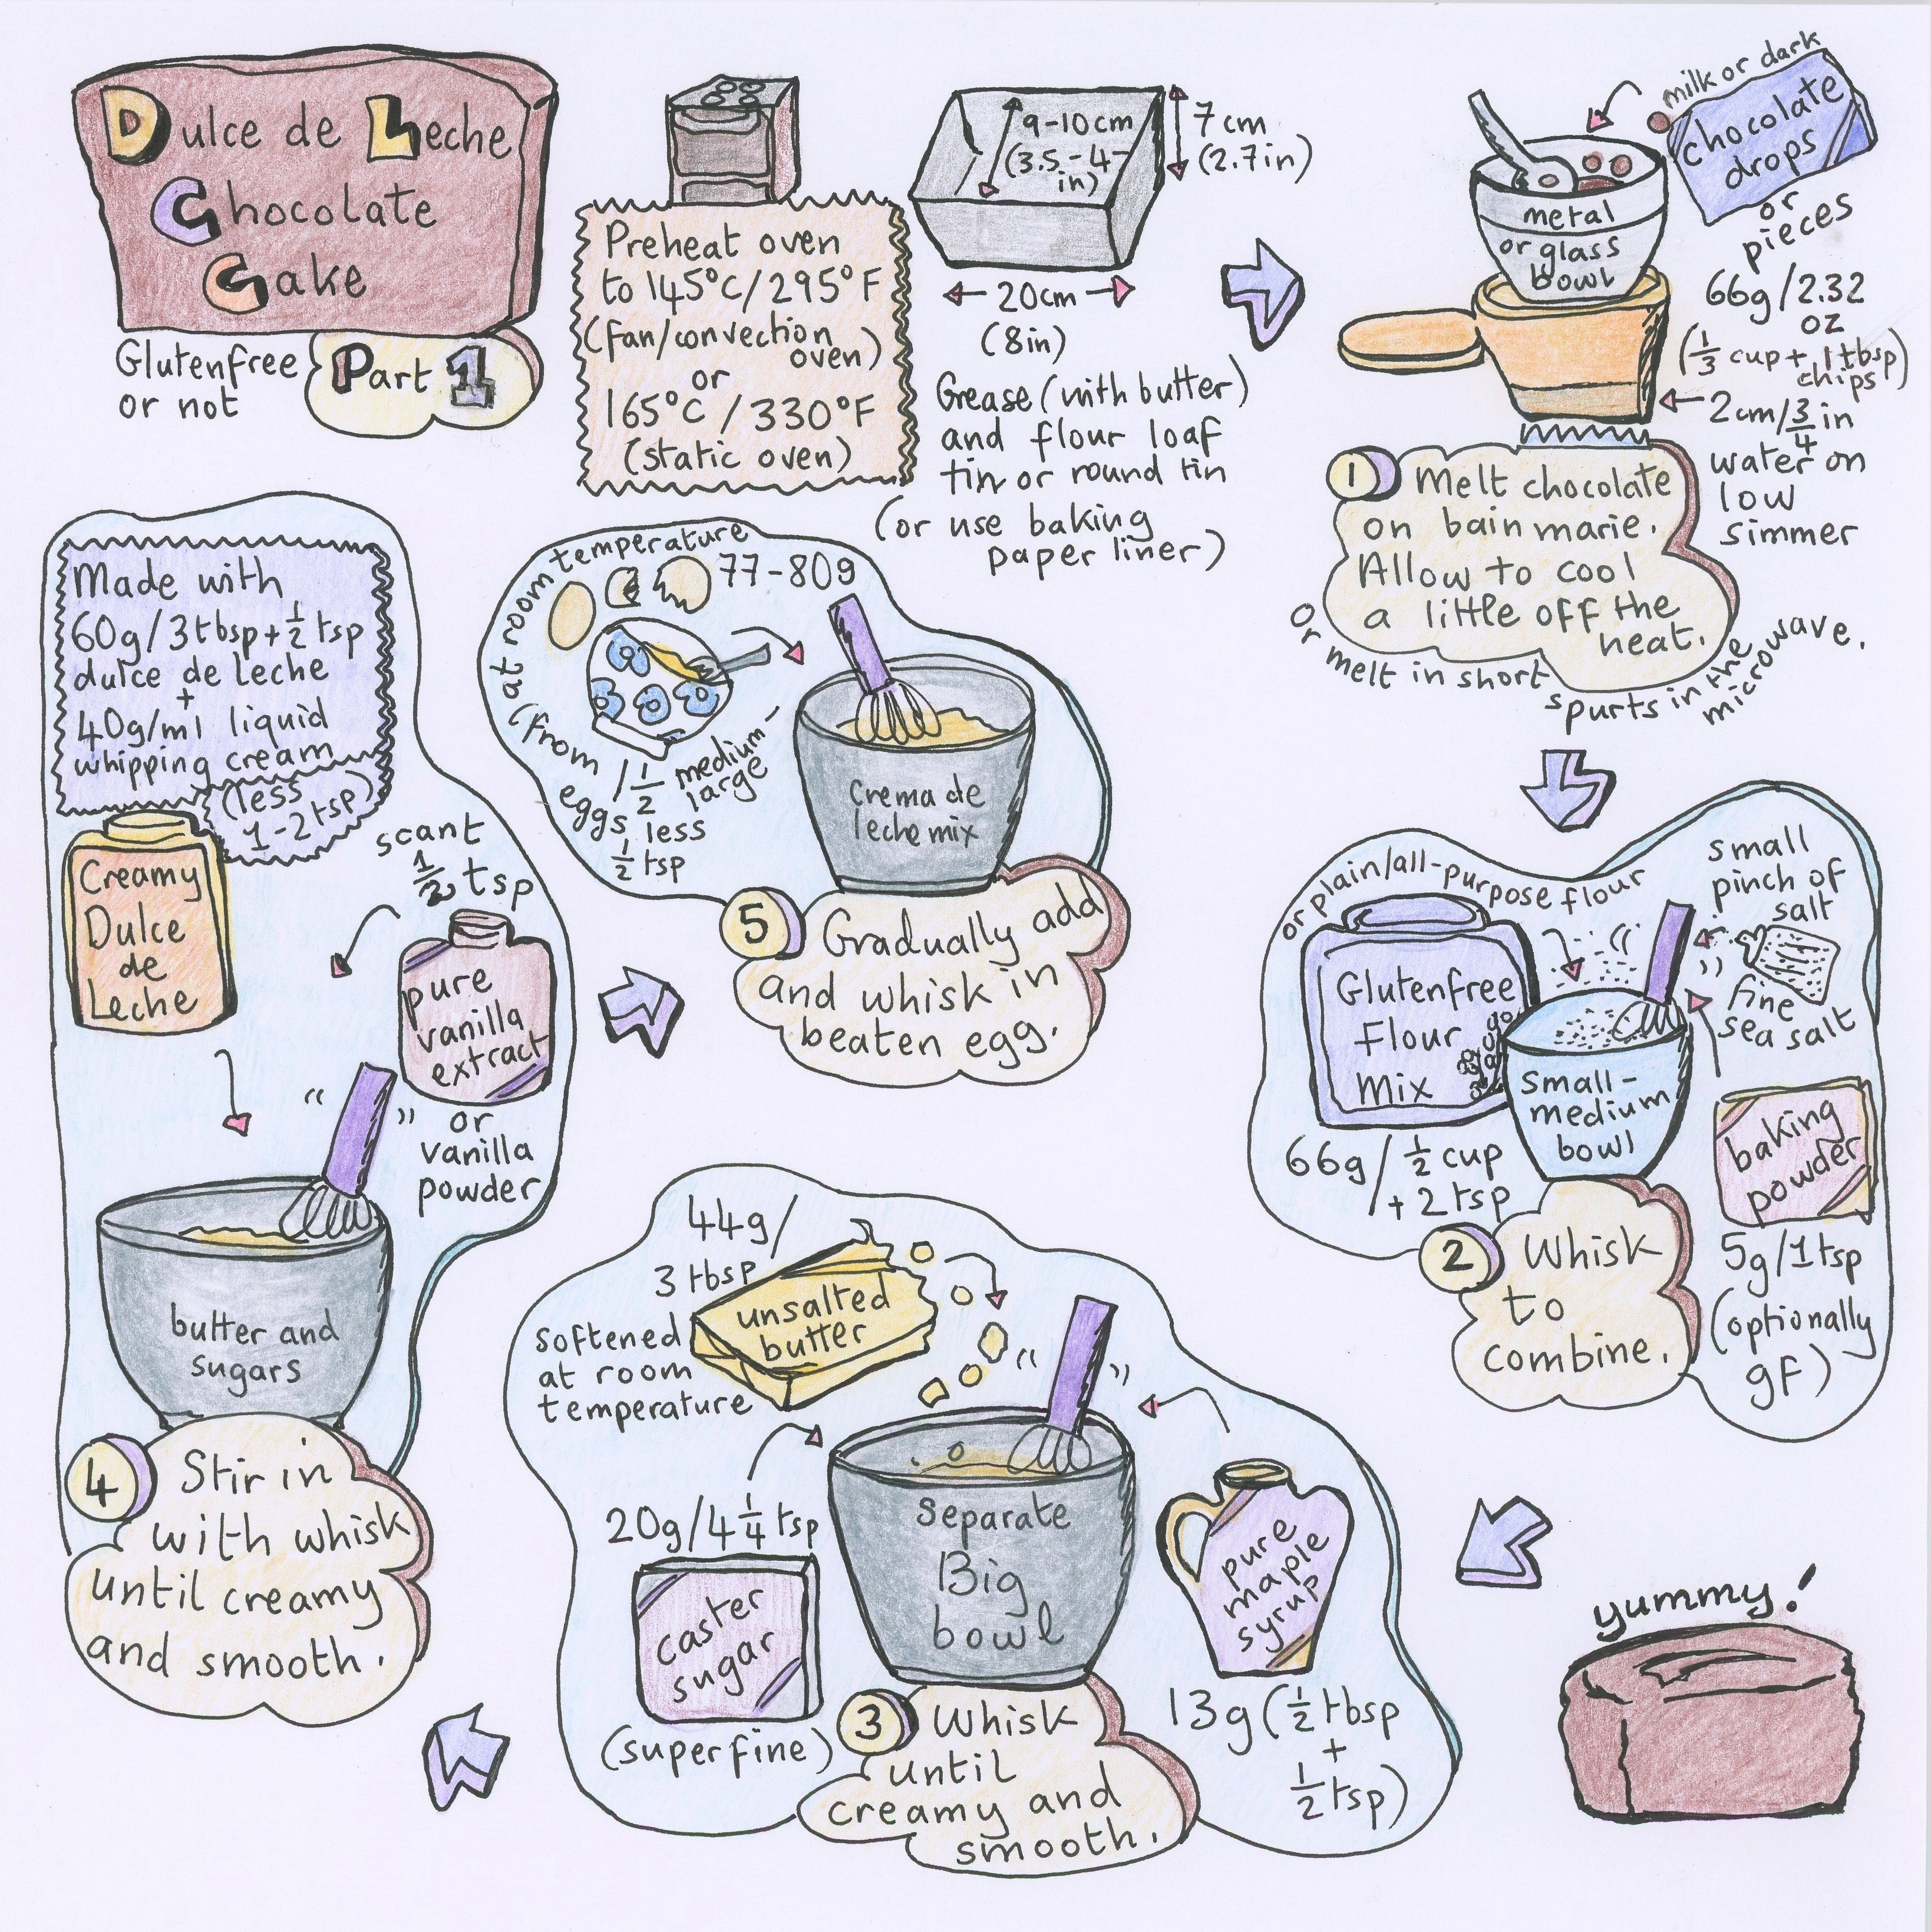 Dulce de Leche
Chocolate
Cake
Glutenfree
or not
Part 1
Preheat oven
to 145°C/295°F
(fan/convection
oven)
or
165°C/330°F
(static oven)
9-10cm
(3.5-4-
in)
7cm
(2.7in)
20cm
(8in)
Grease (with butter)
and flour loaf
tin or round tin
(or use baking
paper liner)
milk or dark
chocolate
drops
or
pieces
66g/2.32
oz
(1/3 cup + 1tbsp)
chips
metal
or glass
bowl
2cm/3/4 in
water on
low
simmer
1 Melt chocolate
on bain marie.
Allow to cool
a little off the
heat.
or melt in short spurts in the microwave.
or plain/all-purpose flour
small
pinch of
salt
fine
sea salt
Glutenfree
Flour
Mix
small-
medium
bowl
66g/1/2 cup
+2 tsp
baking
powder
5g/1tsp
(optionally
gf)
2 Whisk
to
combine.
44g/
3 tbsp
unsalted
butter
softened
at room
temperature
20g/4 1/4 tsp
caster
sugar
(superfine)
Separate
Big
bowl
pure
maple
syrup
13g (1/2 tbsp
+
1/2 tsp)
3 Whisk
until
creamy and
smooth.
Made with
60g/3tbsp+1/2 tsp
dulce de leche
+
40g/ml liquid
whipping cream
(less
1-2 tsp)
Creamy
Dulce
de
Leche
scant
1/2 tsp
pure
vanilla
extract
or
vanilla
powder
butter and
sugars
4 Stir in
with whisk
until creamy
and smooth.
77-80g
(from eggs at room temperature
/1/2 medium-
large
less
1/2 tsp
Crema de
leche mix
5 Gradually add
and whisk in
beaten egg.
yummy!